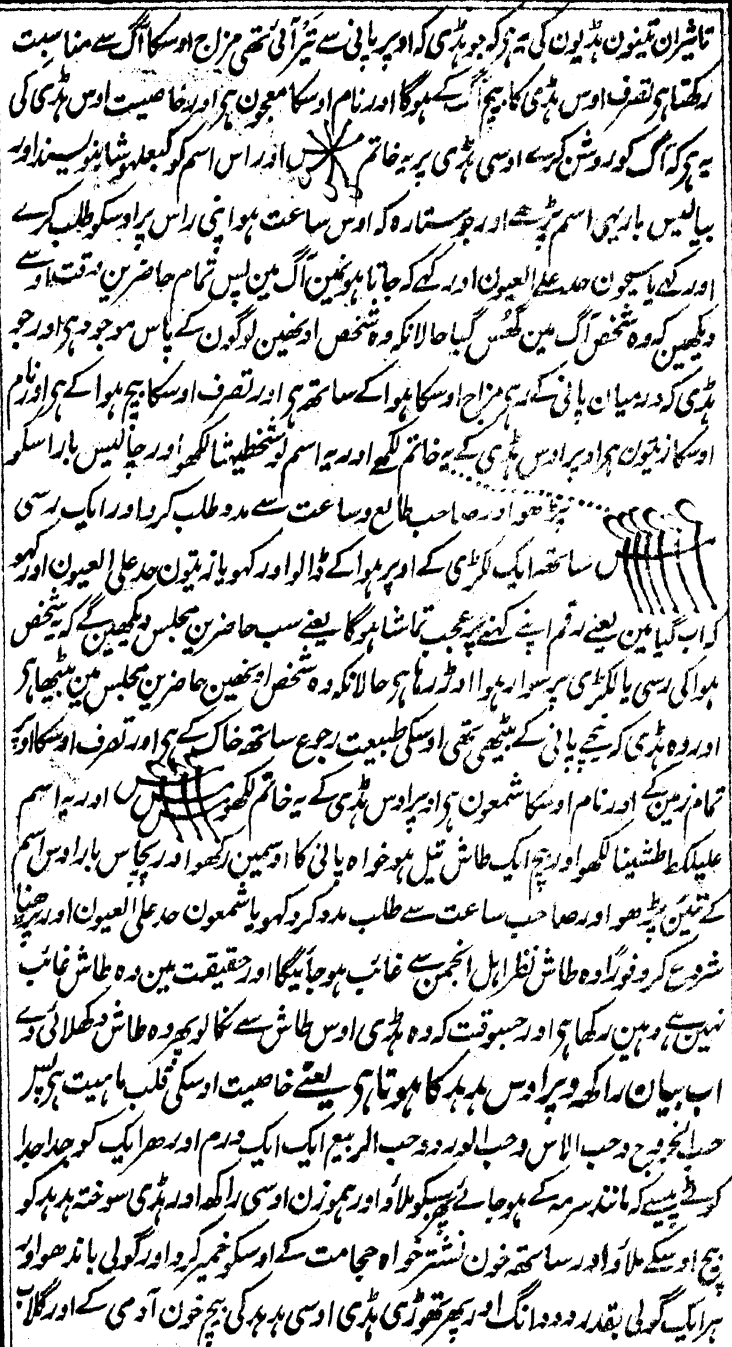 تاثیر ان تینون ہڈیون کی یہ ہی کہ جو ہڈی کہ اوپر پانی سے تیر آئی تھی مزاج اوسکا آگ سے مناسبت
رکھتا ہی تصرف اوس ہڈی کا بیچ آگ کے ہوگا اور نام اوسکا معجون ہی اور خاصیت اوس ہڈی کی
یہ ہی کہ آگ کو روشن کرے اوسی ہڈی پر یہ خاتم اور اس اسم کو
بیالیس بار یہی اسم پڑھے اور جو ستارہ کہ اوس ساعت ہو اپنی راس پر اوسکو طلب کرے
اور کہے یا سیحون حد علی العیون اور کہے کہ جاتا ہون مین آگ مین پس تمام حاضرین
دیکھین کہ وہ شخص آگ مین گھس گیا حالانکہ وہ شخص اونھین لوگون کے پاس موجود ہی اور جو
ہڈی کہ درمیان پانی کے رہی مزاج اوسکا ہوا کے ساتھ ہی اور تصرف اوسکا بیچ ہوا کے ہی اور نام
اوسکا زیتون ہی اوپر اوس ہڈی کے یہ خاتم لکھے اور یہ اسم لکھو اور چالیس بار اسکو
پڑھو اور صاحب طالع و ساعت سے مدد طلب کرو اور ایک رسی
ساتھ ایک لکڑی کے اوپر ہوا کے ڈالو اور کہو یا زیتون حد علی العیون اور کہو
کہ اب گیا مین یعنے اپنے کہنے پر عجب تماشا ہوگا یعنے سب حاضرین مجلس دیکھین گے کہ یہ شخص
ہوا کی رسی یا لکڑی پر سوار ہوا اوڑ رہا ہی حالانکہ وہ شخص اونھین حاضرین مجلس مین بیٹھا ہی
اور وہ ہڈی کہ نیچے پانی کے بیٹھی تھی اوسکی طبیعت رجوع ساتھ خاک کے ہی اور تصرف اوسکا اوپر
تمام زمین کے اور نام اوسکا شمعون ہی اوپر اوس ہڈی کے یہ خاتم لکھو اور یہ اسم
لکھو اور بیچ ایک طاش تیل ہو خواہ پانی کا اوسمین رکھو اور پچاس بار اوس اسم
کے تئین پڑھو اور صاحب ساعت سے طلب مدد کرو کہو یا شمعون حد علی العیون اور پڑھنا
شروع کرو فوراً وہ طاش نظر اہل انجمن سے غائب ہو جائیگا اور حقیقت مین وہ طاش غائب
نہین ہے وہین رکھا ہی اور جسوقت کہ وہ ہڈی اوس طاش سے نکالو پھر وہ طاش دکھلائی دے
اب بیان راکھ و پر اوس ہدہد کا ہوتا ہی یعنے خاصیت اوسکی قلب ماہیت ہی پس
حب الخروع و حب الاس و حب الورد و حب الربیع ایک ایک درم اور ہر ایک کو جدا جدا
کوٹے پیسے کہ مانند سرمہ کے ہو جائے پھر سبکو ملاؤ اور ہموزن اوسی راکھ اور ہڈی سوختہ ہدہد کو
بیچ اوسکے ملاؤ اور ساتھ خون نشتر خواہ حجامت کے اوسکو خمیر کرو اور گولی باندھو اور
ہر ایک گولی بقدر دو دانگ اور پھر تھوڑی ہڈی اوسی ہدہد کی بیچ خون آدمی کے اور گلاب